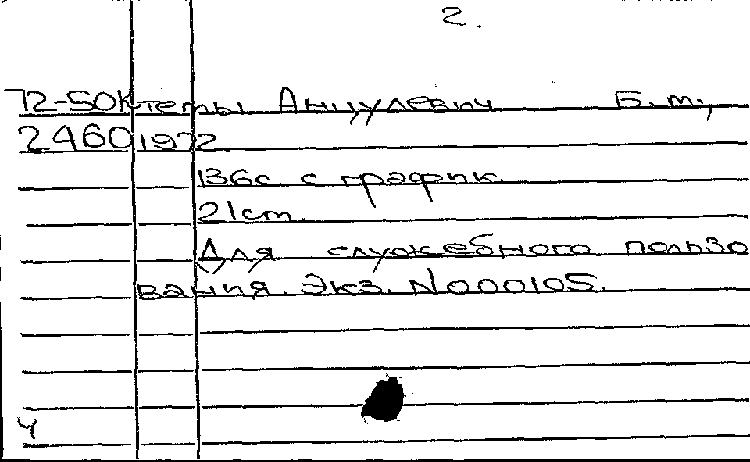 2.
72-50ктеты Анцулевич Б.м.,
2460 1972.
136с с график
21cm.
Для служебного пользо
вания. Экз. N000105.
4